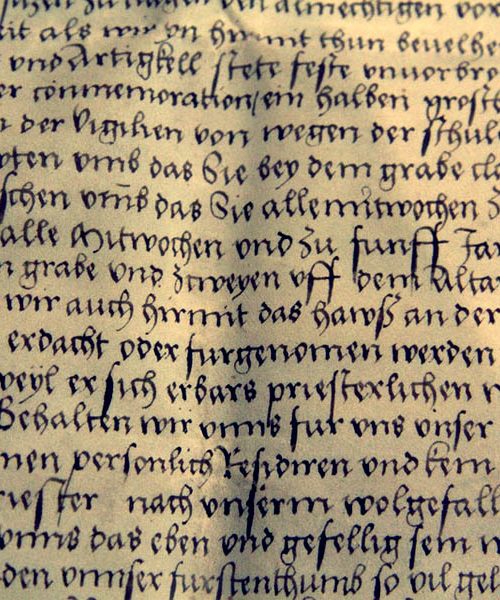 almechtigen
eit als wir yn hirmit thun bevelhe
und Artigkell stete feste unvorbro
er commemoration/ein halben grosch
n der Vigilien von wegen der schul
yten umb das Sie bey dem grabe
schen umb das Sie alle mitwochen
alle Mitwochen und zu funff Jar
n grabe und zweyen uff dem Altar
wir auch hirmit das hawß an der
erdacht oder furgenomen werden
weyl er sich erbars priesterlichen
Behalten wir unns fur uns unser
nen personlich Residiren und kein
riester nach unserm wolgefall
unns das eben und gefellig sein
den unnser furstenthumb so vil gel